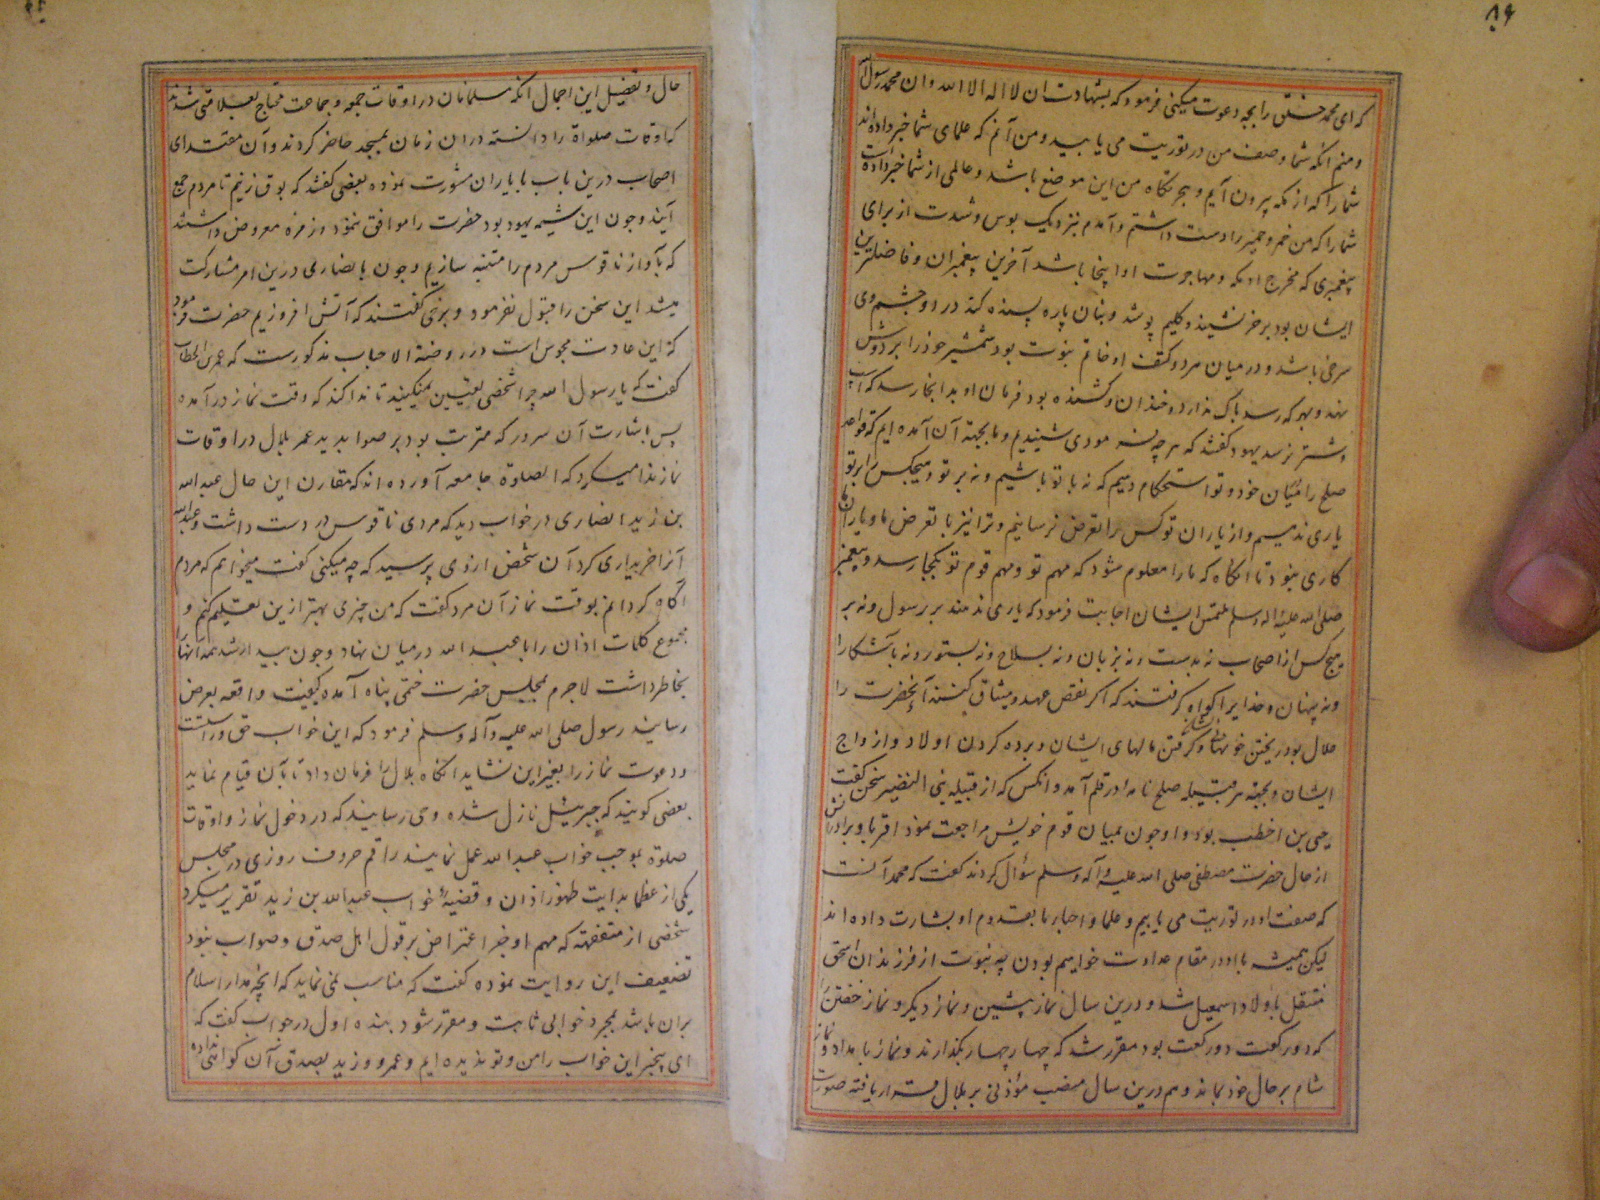 ۸۶
که ای محمد خلق را بچه دعوت میکنی فرمود که بشهادت ان لا اله الا الله وان محمد رسول الله
و منم آنکه شما وصف من در توریت می یابید و من آنم که علمای شما خبر داده اند
شما را که از مکه بیرون آیم و هجرتگاه من این موضع باشد و عالمی از شما خبر داده است
شما را که من خمر و خمیر را دست داشتم و آمدم بنزدیک بوس و شدت از برای
پیغمبری که مخرج او مکه و مهاجرت او اینجا باشد آخرین پیغمبران و فاضلترین
ایشان بود بر خر نشیند و گلیم پوشد و بنان پاره بسنده کند در دو چشم وی
سرخی باشد و در میان هر دو کتف او خاتم نبوت بود شمشیر خود را بر دوش
نهد و بهر که رسد باک ندارد و خندان و کشنده بود فرمان او بدانجا رسد که اسب
و شتر رسد یهود گفتند که هر چه فرمودی شنیدیم و ما بجهة آن آمده ایم که قواعد
صلح را میان خود و تو استحکام دهیم که نه با تو باشیم و نه بر تو و هیچکس را بر تو
یاری ندهیم و از یاران تو کس را تعرض نرسانیم و ترا نیز با تعرض ما و یاران ما
کاری نبود تا آنگاه که ما را معلوم شود که مهم تو و مهم قوم تو بکجا رسد و پیغمبر
صلی الله علیه وآله وسلم ملتمس ایشان اجابت فرمود که یاری ندهند بر رسول و نه بر
هیچ کس از اصحاب نه بدست و نه بزبان و نه بسلاح و نه بستور و نه بآشکارا
و نه پنهان و خدایرا گواه گرفتند که اگر نقض عهد و میثاق کنند آنحضرت را
حلال بود ریختن خونهای ایشان و گرفتن مالهای ایشان و برده کردن اولاد و ازواج
ایشان و بجهة هر قبیله صلح نامه در قلم آمد و آنکس که از قبیله بنی النضیر سخن گفت
حی بن اخطب بود و او چون بمیان قوم خویش مراجعت نمود اقربا و برادرانش
از حال حضرت مصطفی صلی الله علیه وآله وسلم سؤال کردند گفت که محمد آنست
که صفت او در توریت می یابیم و علما و احبار ما بقدوم او بشارت داده اند
لیکن همیشه با او در مقام عداوت خواهیم بودن چه نبوت از فرزندان اسحق
منتقل باولاد اسمعیل شد و درین سال نماز پیشین و نماز دیگر و نماز خفتن را
که دو رکعت دو رکعت بود مقرر شد که چهار چهار بگذارند و نماز بامداد و نماز
شام بر حال خود بماند و هم درین سال منصب مؤذنی بر بلال قرار یافته صورت
حال و تفصیل این اجمال آنکه مسلمانان در اوقات جمعه و جماعت محتاج بعلامتی شدند
که اوقات صلواة را دانسته در ان زمان بمسجد حاضر گردند و آن مقتدای
اصحاب درین باب با یاران مشورت نموده بعضی گفتند که بوق زنیم تا مردم جمع
آیند و چون این شیمه یهود بود حضرت را موافق ننمود و زمره معروض داشتند
که بآواز ناقوس مردم را متنبه سازیم و چون با نصاری درین امر مشارکت
میشد این سخن را قبول نفرمود و برخی گفتند که آتش افروزیم حضرت فرمود
که این عادت مجوس است در روضة الاحباب مذکورست که عمر بن الخطاب
گفت که یا رسول الله چرا شخصی تعیین نمیکنید تا ندا کند که وقت نماز در آمده
پس باشارت آن سرور که مترتب بود بر صوابدید عمر بلال در اوقات
نماز ندا میکرد که الصلوة جامعه آورده اند که مقارن این حال عبدالله
بن زید انصاری در خواب دید که مردی ناقوس در دست داشت و عبدالله
آنرا خریداری کرد آن شخص از وی پرسید که چه میکنی گفت میخواهم که مردم
آگاه گردانم بوقت نماز آن مرد گفت که من چیزی بهتر ازین تعلیم کنم و
مجموع کلمات اذان را با عبدالله در میان نهاد و چون بیدار شد همه آنها را
بخاطر داشت لاجرم بمجلس حضرت ختمی پناه آمده کیفیت واقعه بعرض
رسانید رسول صلی الله علیه وآله وسلم فرمود که این خواب حق و راستست
و دعوت نماز را بغیر این نشاید آنگاه بلال را فرمان داد تا بآن قیام نماید
بعضی گویند که جبرئیل نازل شده وحی رسانید که در دخول نماز و اوقات
صلوة بموجب خواب عبدالله عمل نمایند راقم حروف روزی در مجلس
یکی از عظما بدایت ظهور اذان و قضیه خواب عبدالله بن زید تقریر میکرد
شخصی از متفقهه که مهم او جز اعتراض بر قول اهل صدق و صواب نبود
تضعیف این روایت نموده گفت که مناسب نمی نماید که آنچه مدار اسلام
بران باشد بمجرد خوابی ثابت و مقرر شود بنده اول در جواب گفت که
ای بیخبر این خواب را من و تو ندیده ایم و عمرو و زید بصدق آن گواهی نداده